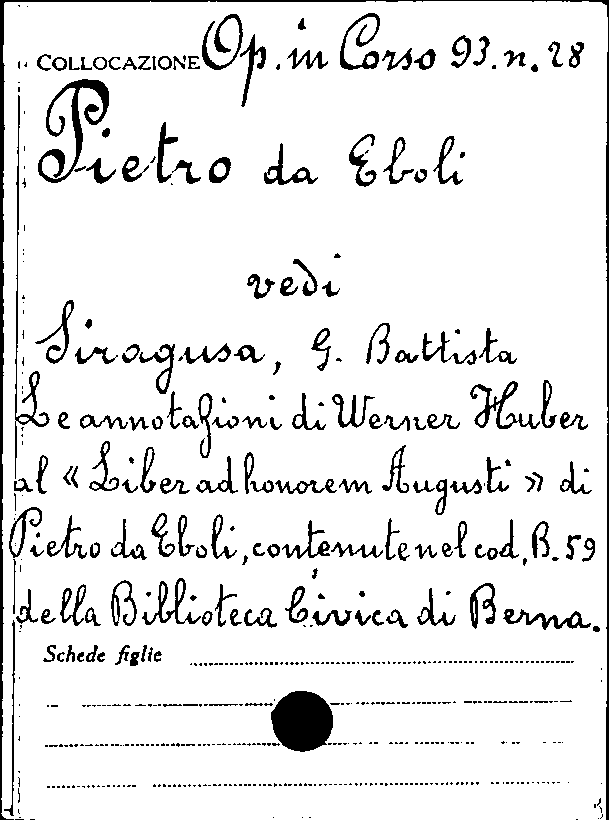 COLLOCAZIONE Op. in Corso 93. n. 28
Pietro da Eboli
vedi
Siragusa, G. Battista
Le annotazioni di Werner Huber
al « Liber ad honorem Augusti » di
Pietro da Eboli, contenute nel cod. B. 59
della Biblioteca Civica di Berna.
Schede figlie